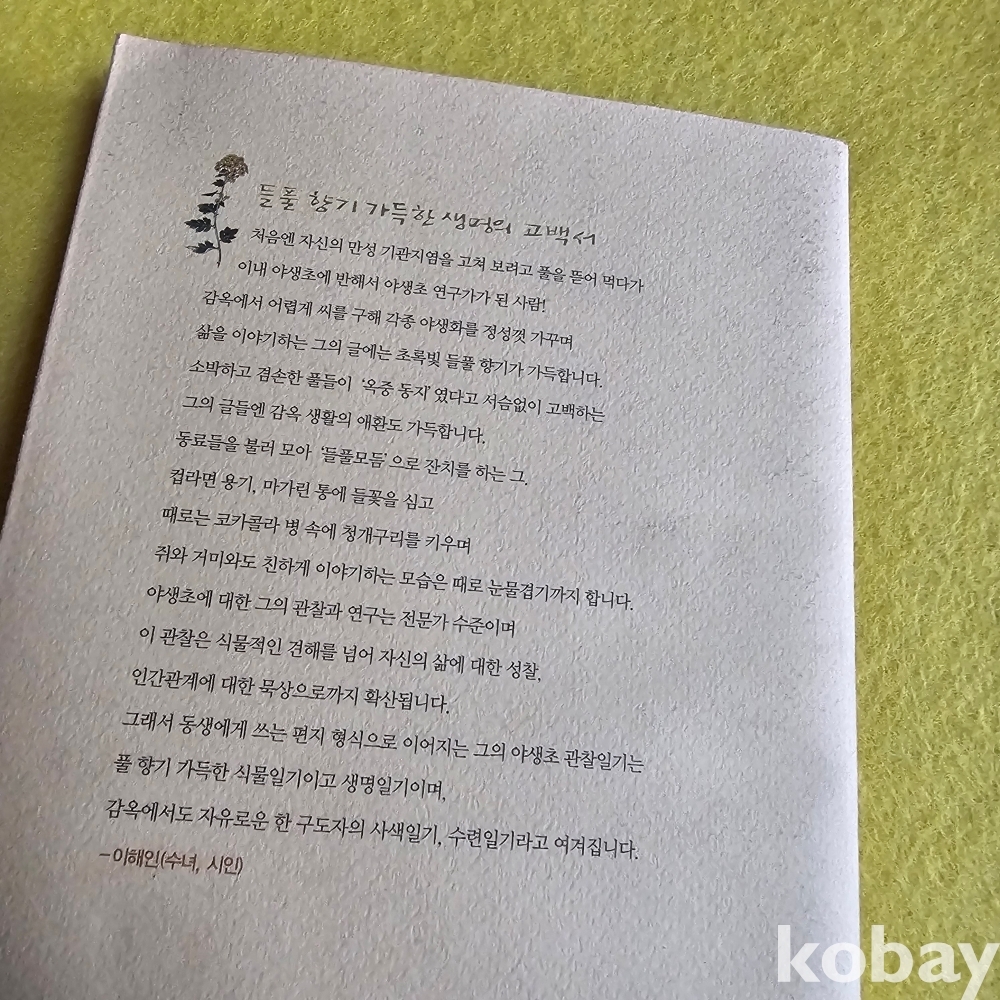 들풀 향기 가득한 생명의 고백서
처음엔 자신의 만성 기관지염을 고쳐 보려고 풀을 뜯어 먹다가
이내 야생초에 반해서 야생초 연구가가 된 사람!
감옥에서 어렵게 씨를 구해 각종 야생화를 정성껏 가꾸며
삶을 이야기하는 그의 글에는 초록빛 들풀 향기가 가득합니다.
소박하고 겸손한 풀들이 '옥중 동지'였다고 서슴없이 고백하는
그의 글들엔 감옥 생활의 애환도 가득합니다.
동료들을 불러 모아 '들풀모듬'으로 잔치를 하는 그.
컵라면 용기, 마가린 통에 들꽃을 심고
때로는 코카콜라 병 속에 청개구리를 키우며
쥐와 거미와도 친하게 이야기하는 모습은 때로 눈물겹기까지 합니다.
야생초에 대한 그의 관찰과 연구는 전문가 수준이며
이 관찰은 식물적인 견해를 넘어 자신의 삶에 대한 성찰,
인간관계에 대한 묵상으로까지 확산됩니다.
그래서 동생에게 쓰는 편지 형식으로 이어지는 그의 야생초 관찰일기는
풀 향기 가득한 식물일기이고 생명일기이며,
감옥에서도 자유로운 한 구도자의 사색일기, 수련일기라고 여겨집니다.
–이해인(수녀, 시인)
kobay